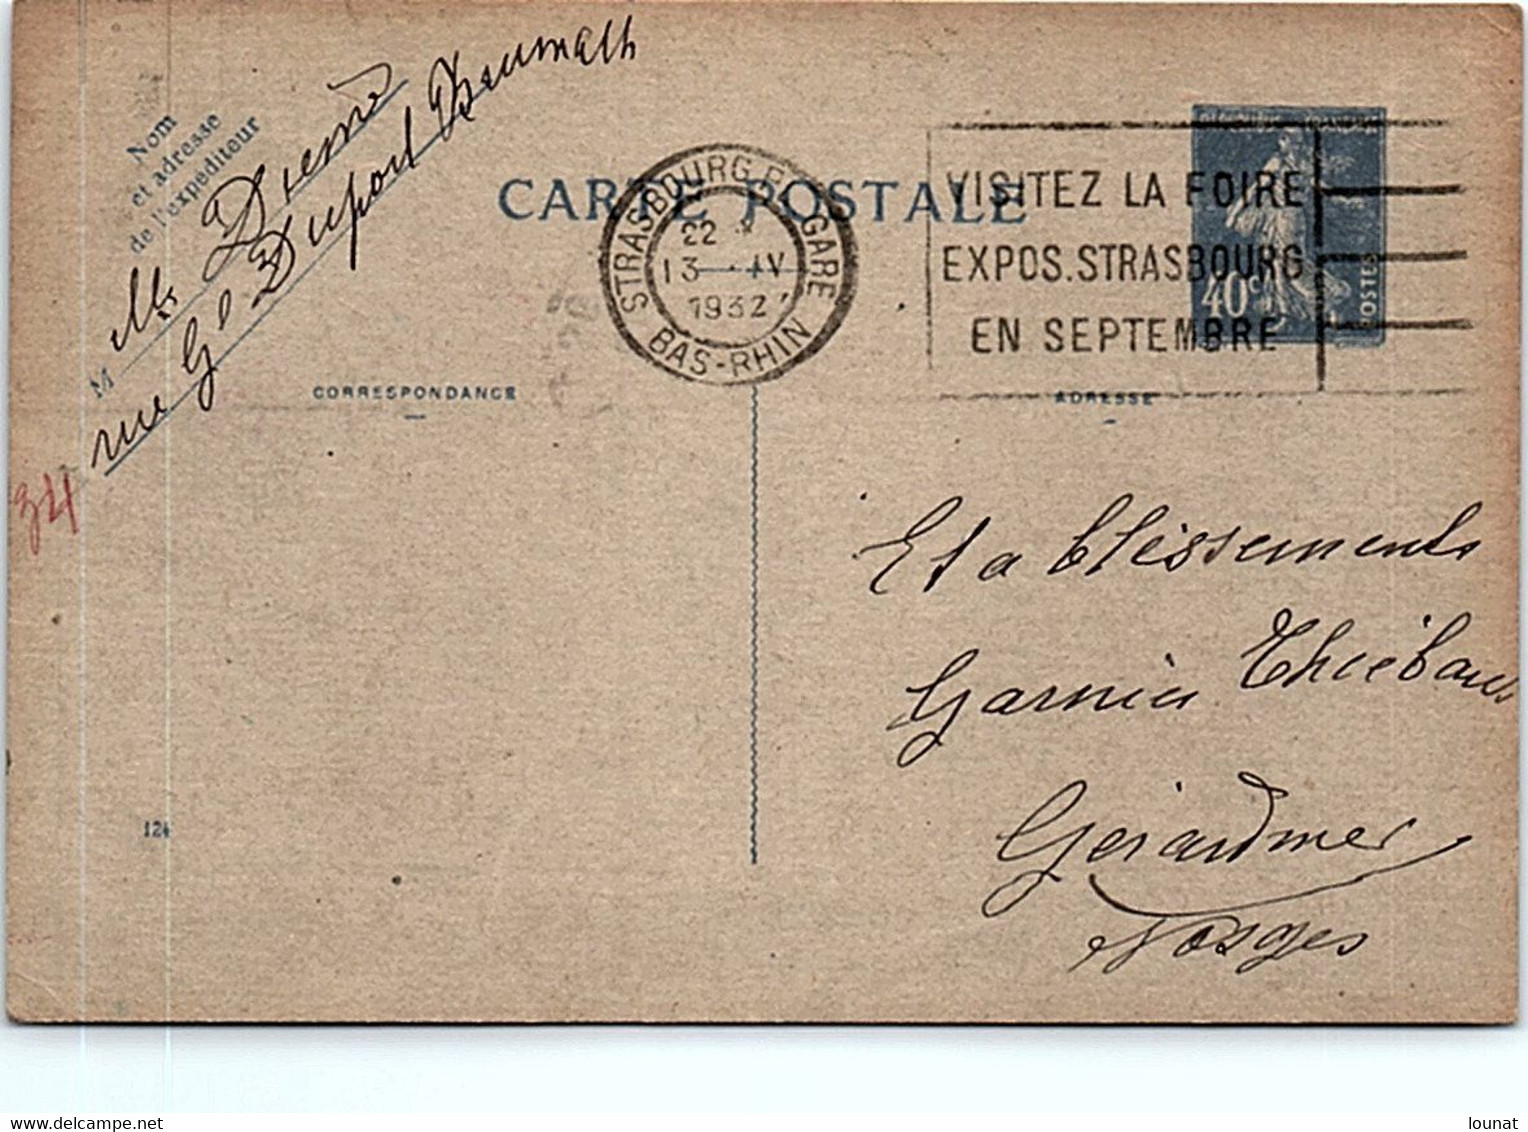 Nom
et adresse
de l'expéditeur
M
rue Gl Duport Brumath
34
CARTE POSTALE
STRASBOURG R.P. GARE
22 *
13 - IV
1932
BAS-RHIN
VISITEZ LA FOIRE
EXPOS. STRASBOURG
EN SEPTEMBRE
40c
POSTES
CORRESPONDANCE
ADRESSE
Etablissements
Garnier Thiébaut
Gérardmer
Vosges
124
lounat